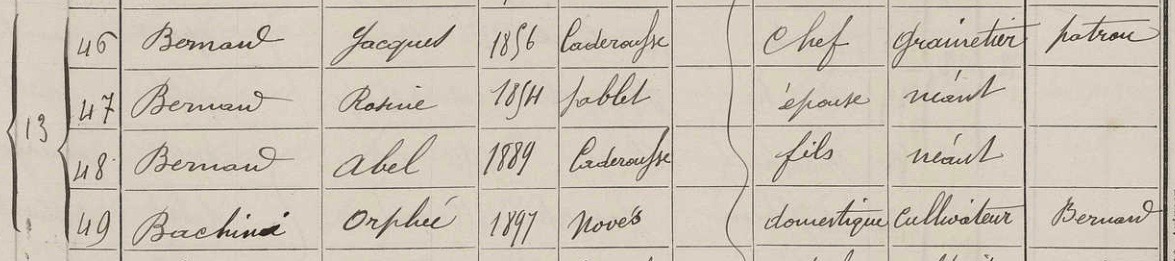 13
46 Bernard Jacques 1856 Caderousse Chef grainetier patron
47 Bernard Rosine 1854 Sablet épouse néant
48 Bernard Abel 1889 Caderousse fils néant
49 Orphée 1897 Novés domestique Cultivateur Bernard